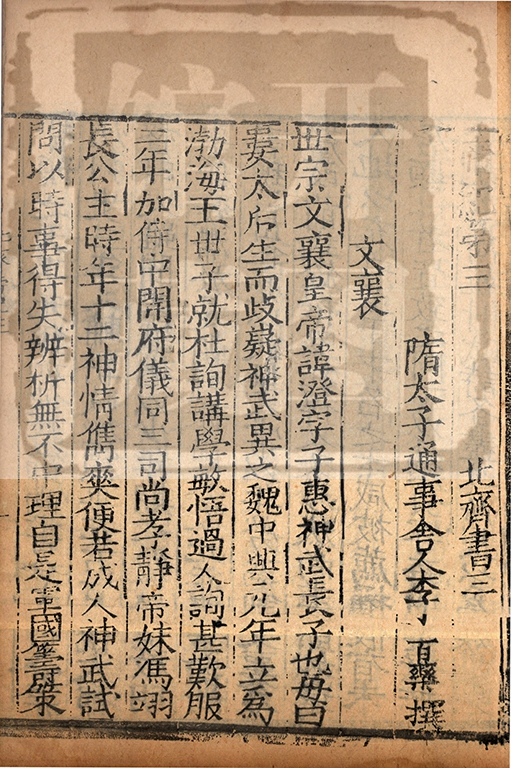 第三 北齊書三
隋太子通事舍人李百藥撰
文襄
世宗文襄皇帝諱澄字子惠神武長子也母曰
婁太后生而歧嶷神武異之魏中興元年立為
渤海王世子就杜詢講學敏悟過人詢甚歎服
二年加侍中開府儀同三司尚孝靜帝妹馮翊
長公主時年十二神情儁爽便若成人神武試
問以時事得失辨析無不中理自是軍國籌策